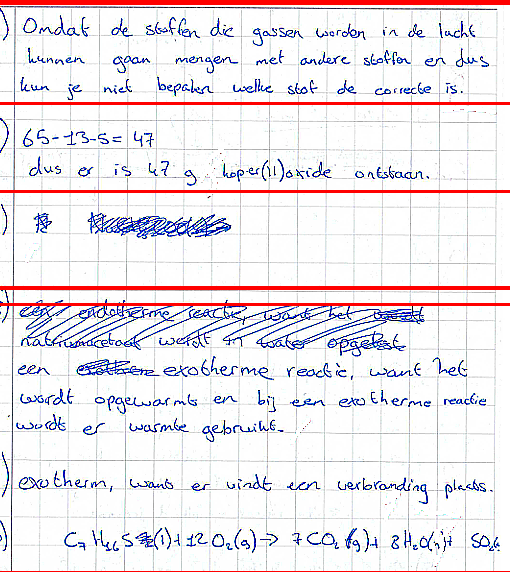 ) Omdat de stoffen die gassen worden in de lucht
kunnen gaan mengen met andere stoffen en dus
kun je niet bepalen welke stof de correcte is.
) 65-13-5= 47
dus er is 47 g koper(II)oxide ontstaan.
)
een endotherme reactie, want het
natriumacetaat wordt in water opgelost
een exotherme reactie, want het
wordt opgewarmt en bij een exotherme reactie
wordt er warmte gebruikt.
) exotherm, want er vindt een verbranding plaats.
) C7H16S (l)+ 12 O2(g) → 7CO2(g)+ 8H2O(l)+ SO2(g